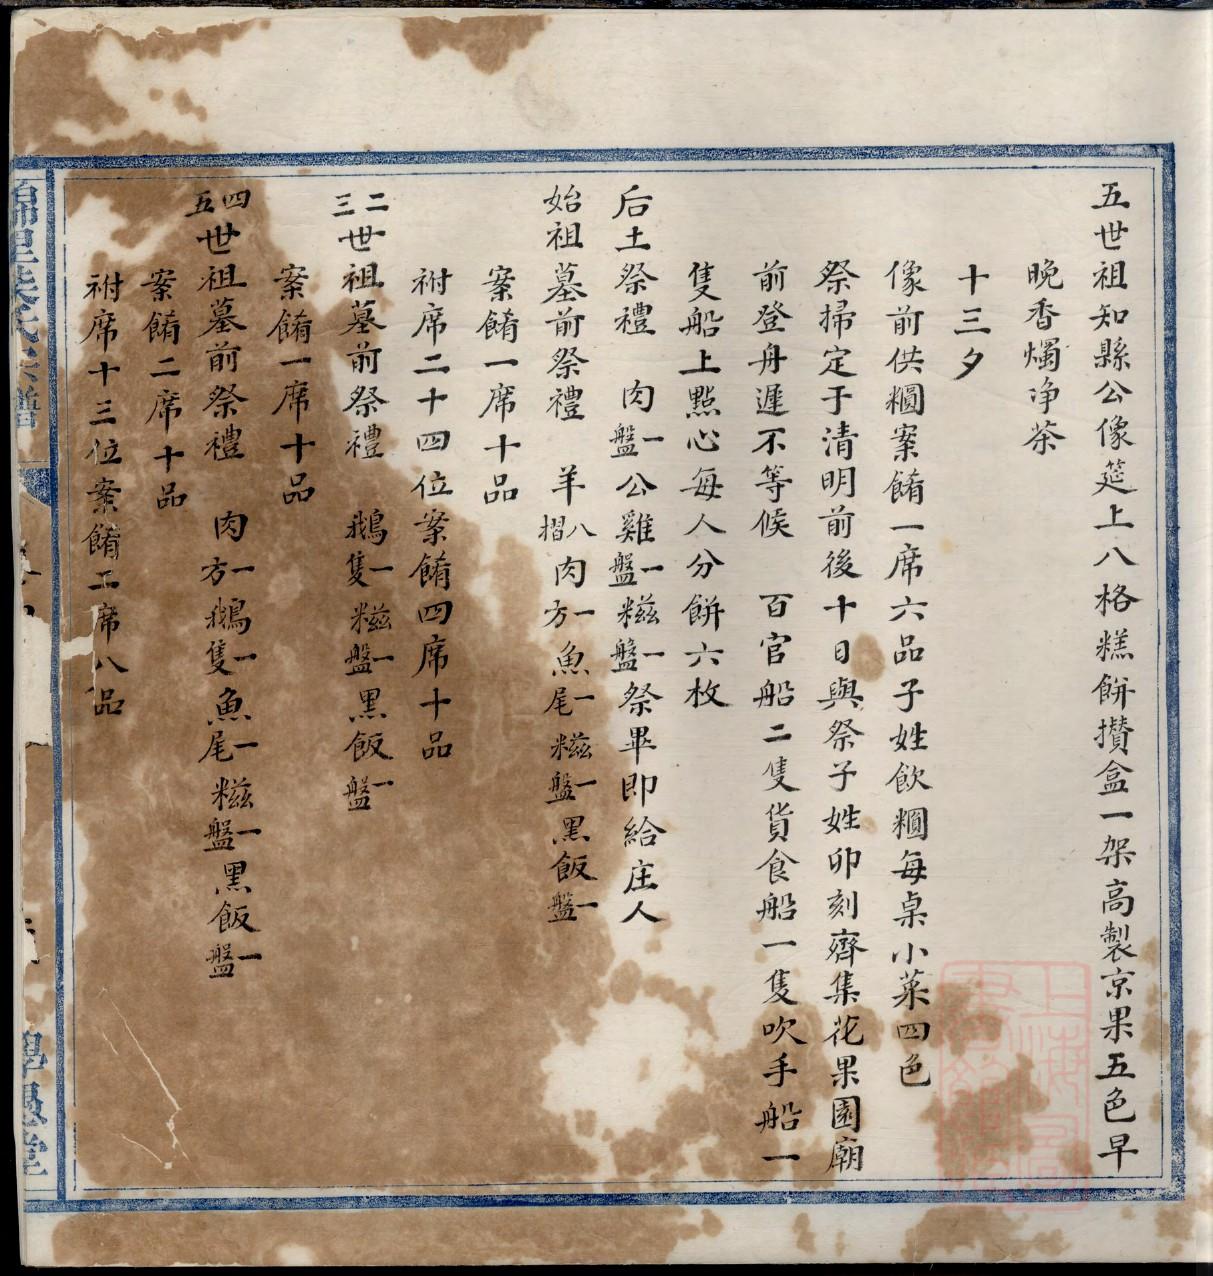 五世祖知縣公像筵上八格糕餅攢盒一架高製京果五色早
晚香燭净茶
十三夕
像前供糰案餚一席六品子姓飲糰每桌小菜四色
祭掃定于清明前後十日與祭子姓卯刻齊集花果園廟
前登舟遲不等候 百官船二隻貨食船一隻吹手船一
隻船上點心每人分餅六枚
后土祭禮 肉一盤公雞一盤糍一盤祭畢即給庄人
始祖墓前祭禮 羊八摺肉一方魚一尾糍一盤黑飯一盤
案餚一席十品
祔席二十四位案餚四席十品
二三世祖墓前祭禮 鵝一隻糍一盤黑飯一盤
案餚一席十品
四五世祖墓前祭禮 肉一方鵝一隻魚一尾糍一盤黑飯一盤
案餚二席十品
祔席十三位案餚二席八品